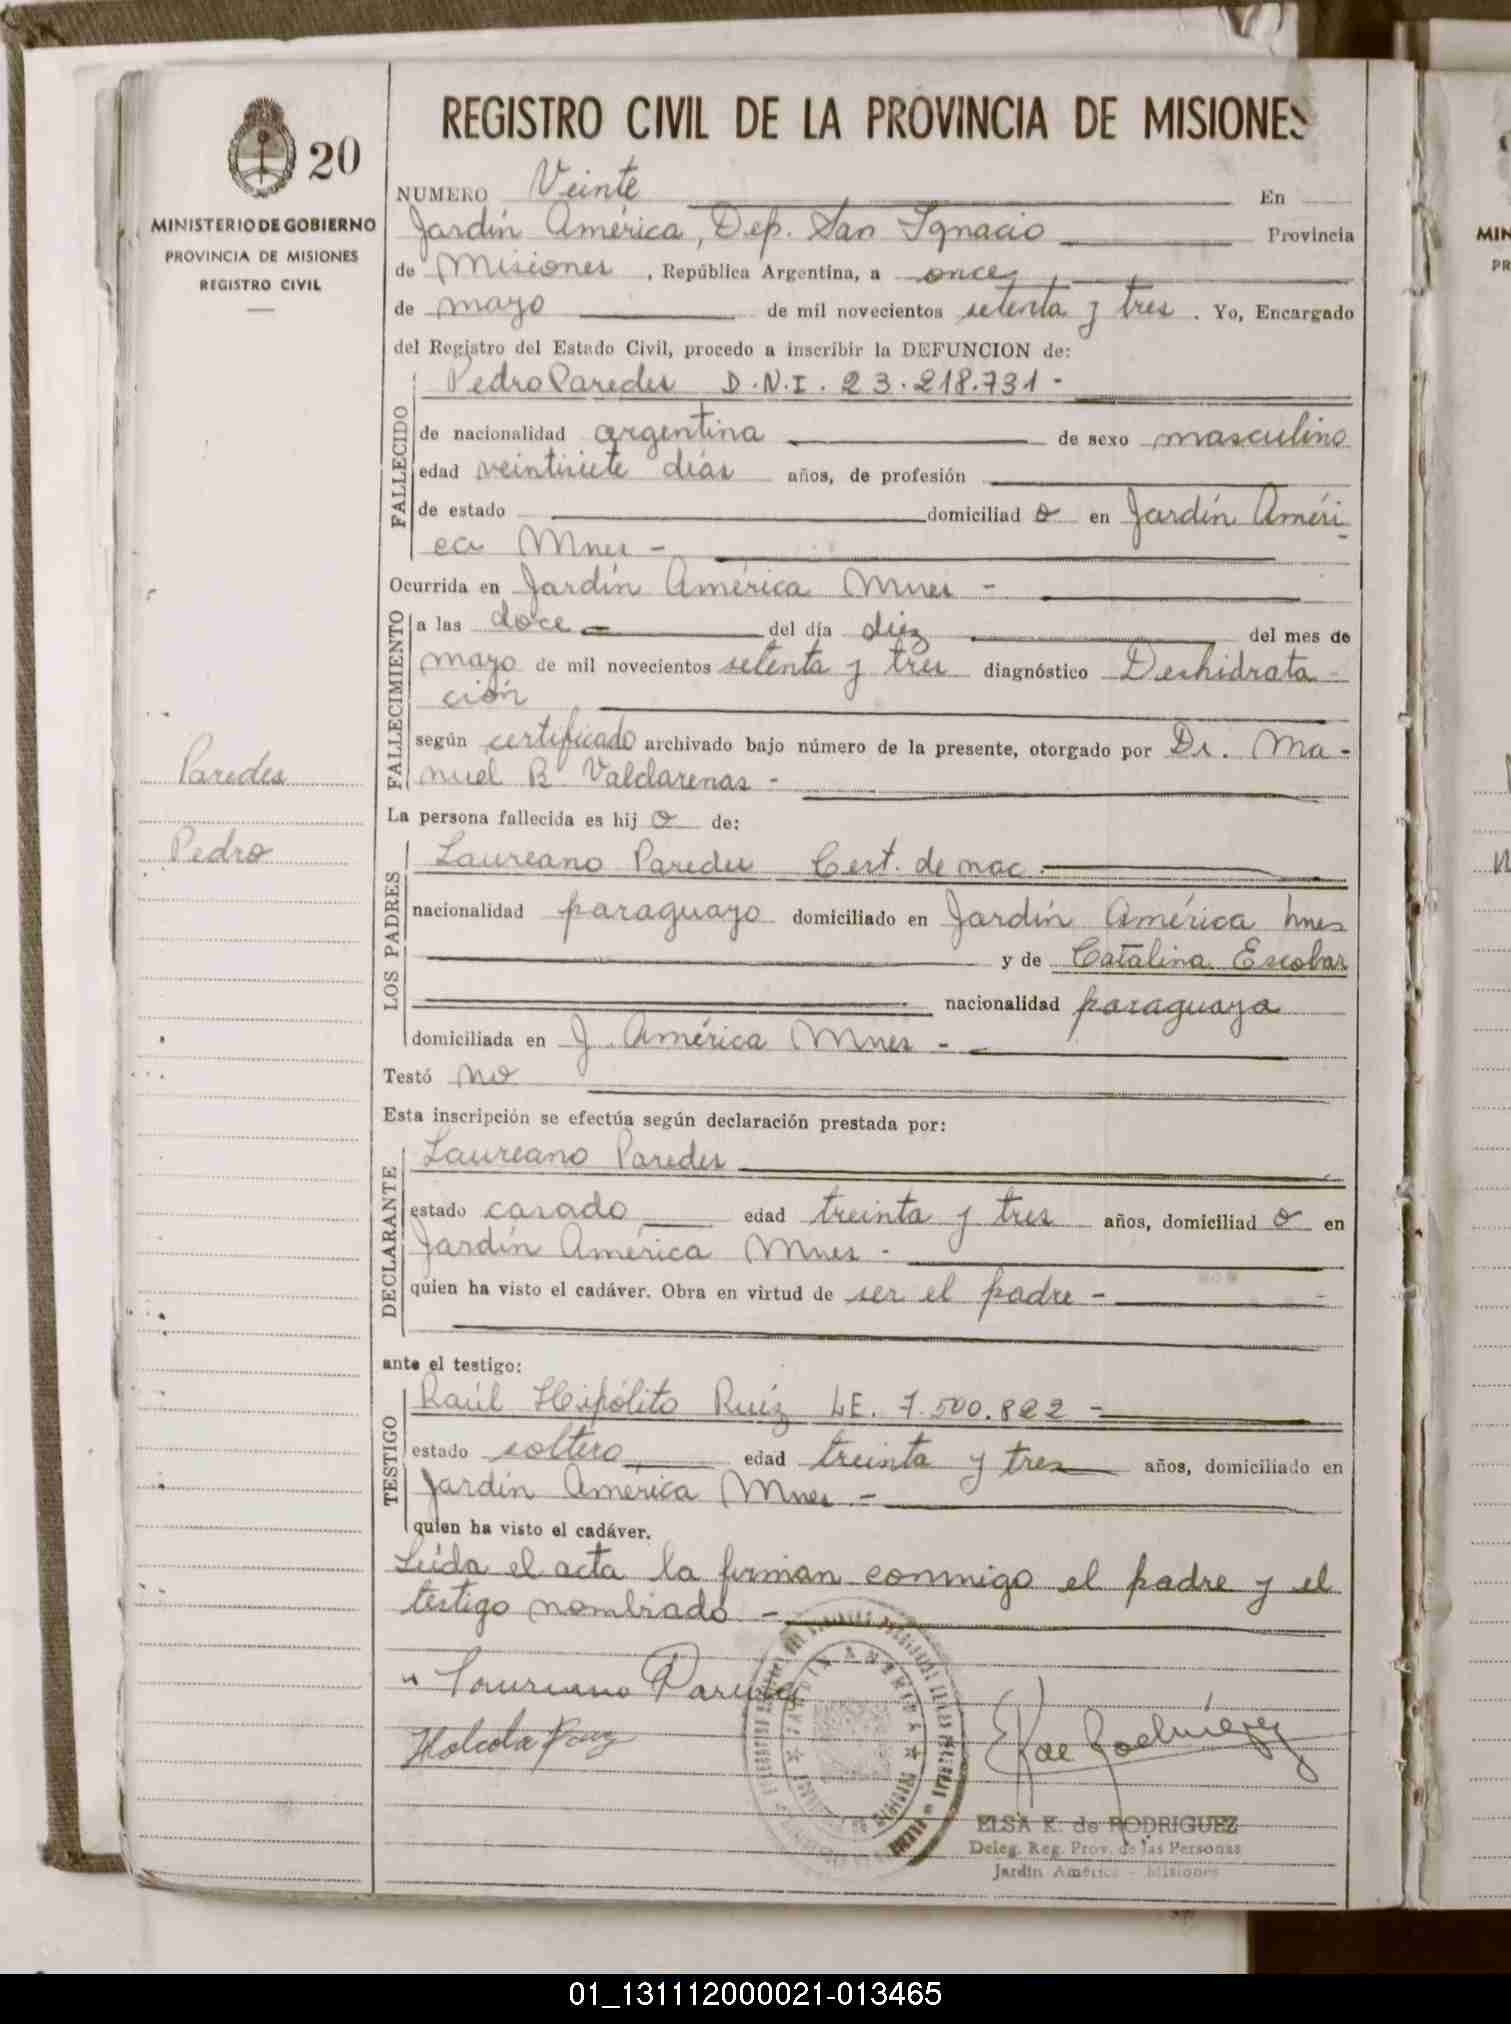 REGISTRO CIVIL DE LA PROVINCIA DE MISIONES
20
MINISTERIO DE GOBIERNO
PROVINCIA DE MISIONES
REGISTRO CIVIL
Paredes
Pedro
NUMERO Veinte En
Jardín América, Dep. San Ignacio Provincia
de Misiones, República Argentina, a once
de mayo de mil novecientos setenta y tres. Yo, Encargado
del Registro del Estado Civil, procedo a inscribir la DEFUNCION de:
FALLECIDO
Pedro Paredes D.N.I. 23.218.731-
de nacionalidad argentina de sexo masculino
edad veintisiete días años, de profesión
de estado domiciliad o en Jardín Améri
ca Mnes -
Ocurrida en Jardín América Mnes -
FALLECIMIENTO
a las doce del día diez del mes de
mayo de mil novecientos setenta y tres diagnóstico Deshidrata-
ción
según certificado archivado bajo número de la presente, otorgado por Dr. Ma-
nuel B. Valdarenas -
La persona fallecida es hij o de:
LOS PADRES
Laureano Paredes Cert. de nac.
nacionalidad paraguayo domiciliado en Jardín América Mnes
y de Catalina Escobar
nacionalidad paraguaya
domiciliada en J. América Mnes -
Testó no
Esta inscripción se efectúa según declaración prestada por:
DECLARANTE
Laureano Paredes
estado casado edad treinta y tres años, domiciliad o en
Jardín América Mnes -
quien ha visto el cadáver. Obra en virtud de ser el padre -
ante el testigo:
TESTIGO
Raúl Hipólito Ruíz LE. 7.500.822 -
estado soltero edad treinta y tres años, domiciliado en
Jardín América Mnes -
quien ha visto el cadáver.
Leída el acta la firman conmigo el padre y el
testigo nombrado -
Laureano Paredes
JARDIN AMERICA
ELSA K. de RODRIGUEZ
Deleg. Reg. Prov. de las Personas
Jardín América - Misiones
01_131112000021-013465